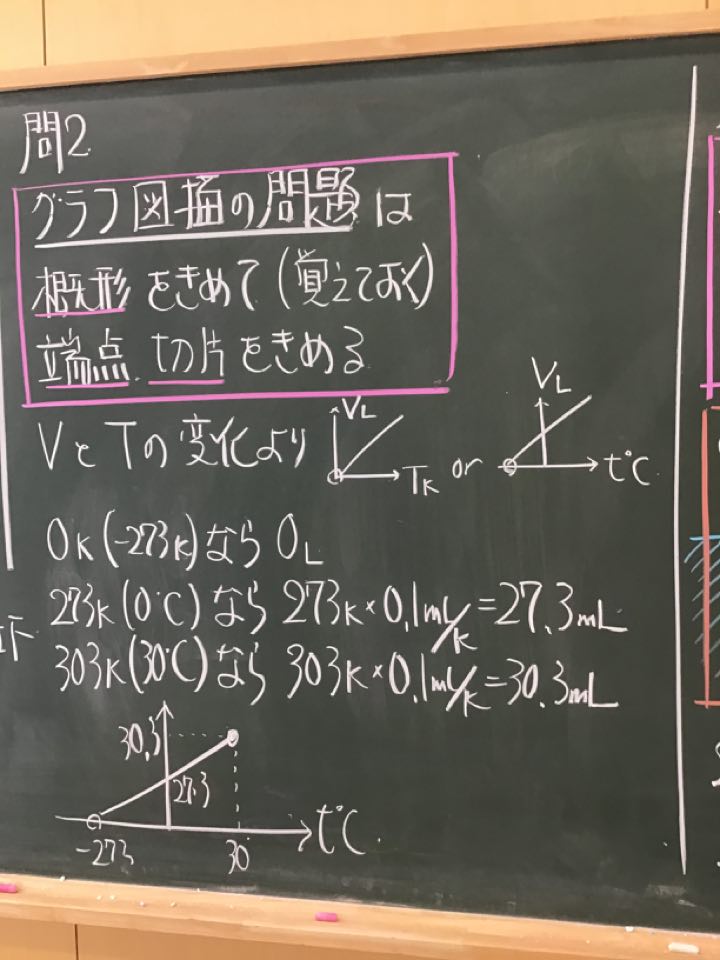 問2
グラフ図描の問題は
概形をきめて(覚えておく)
端点 切片をきめる
VとTの変化より VL TK or VL t℃
0K(-273K)なら0L
273K(0℃)なら 273K×0.1mL/K=27.3mL
303K(30℃)なら 303K×0.1mL/K=30.3mL
30.3
27.3
-273 30 t℃
下